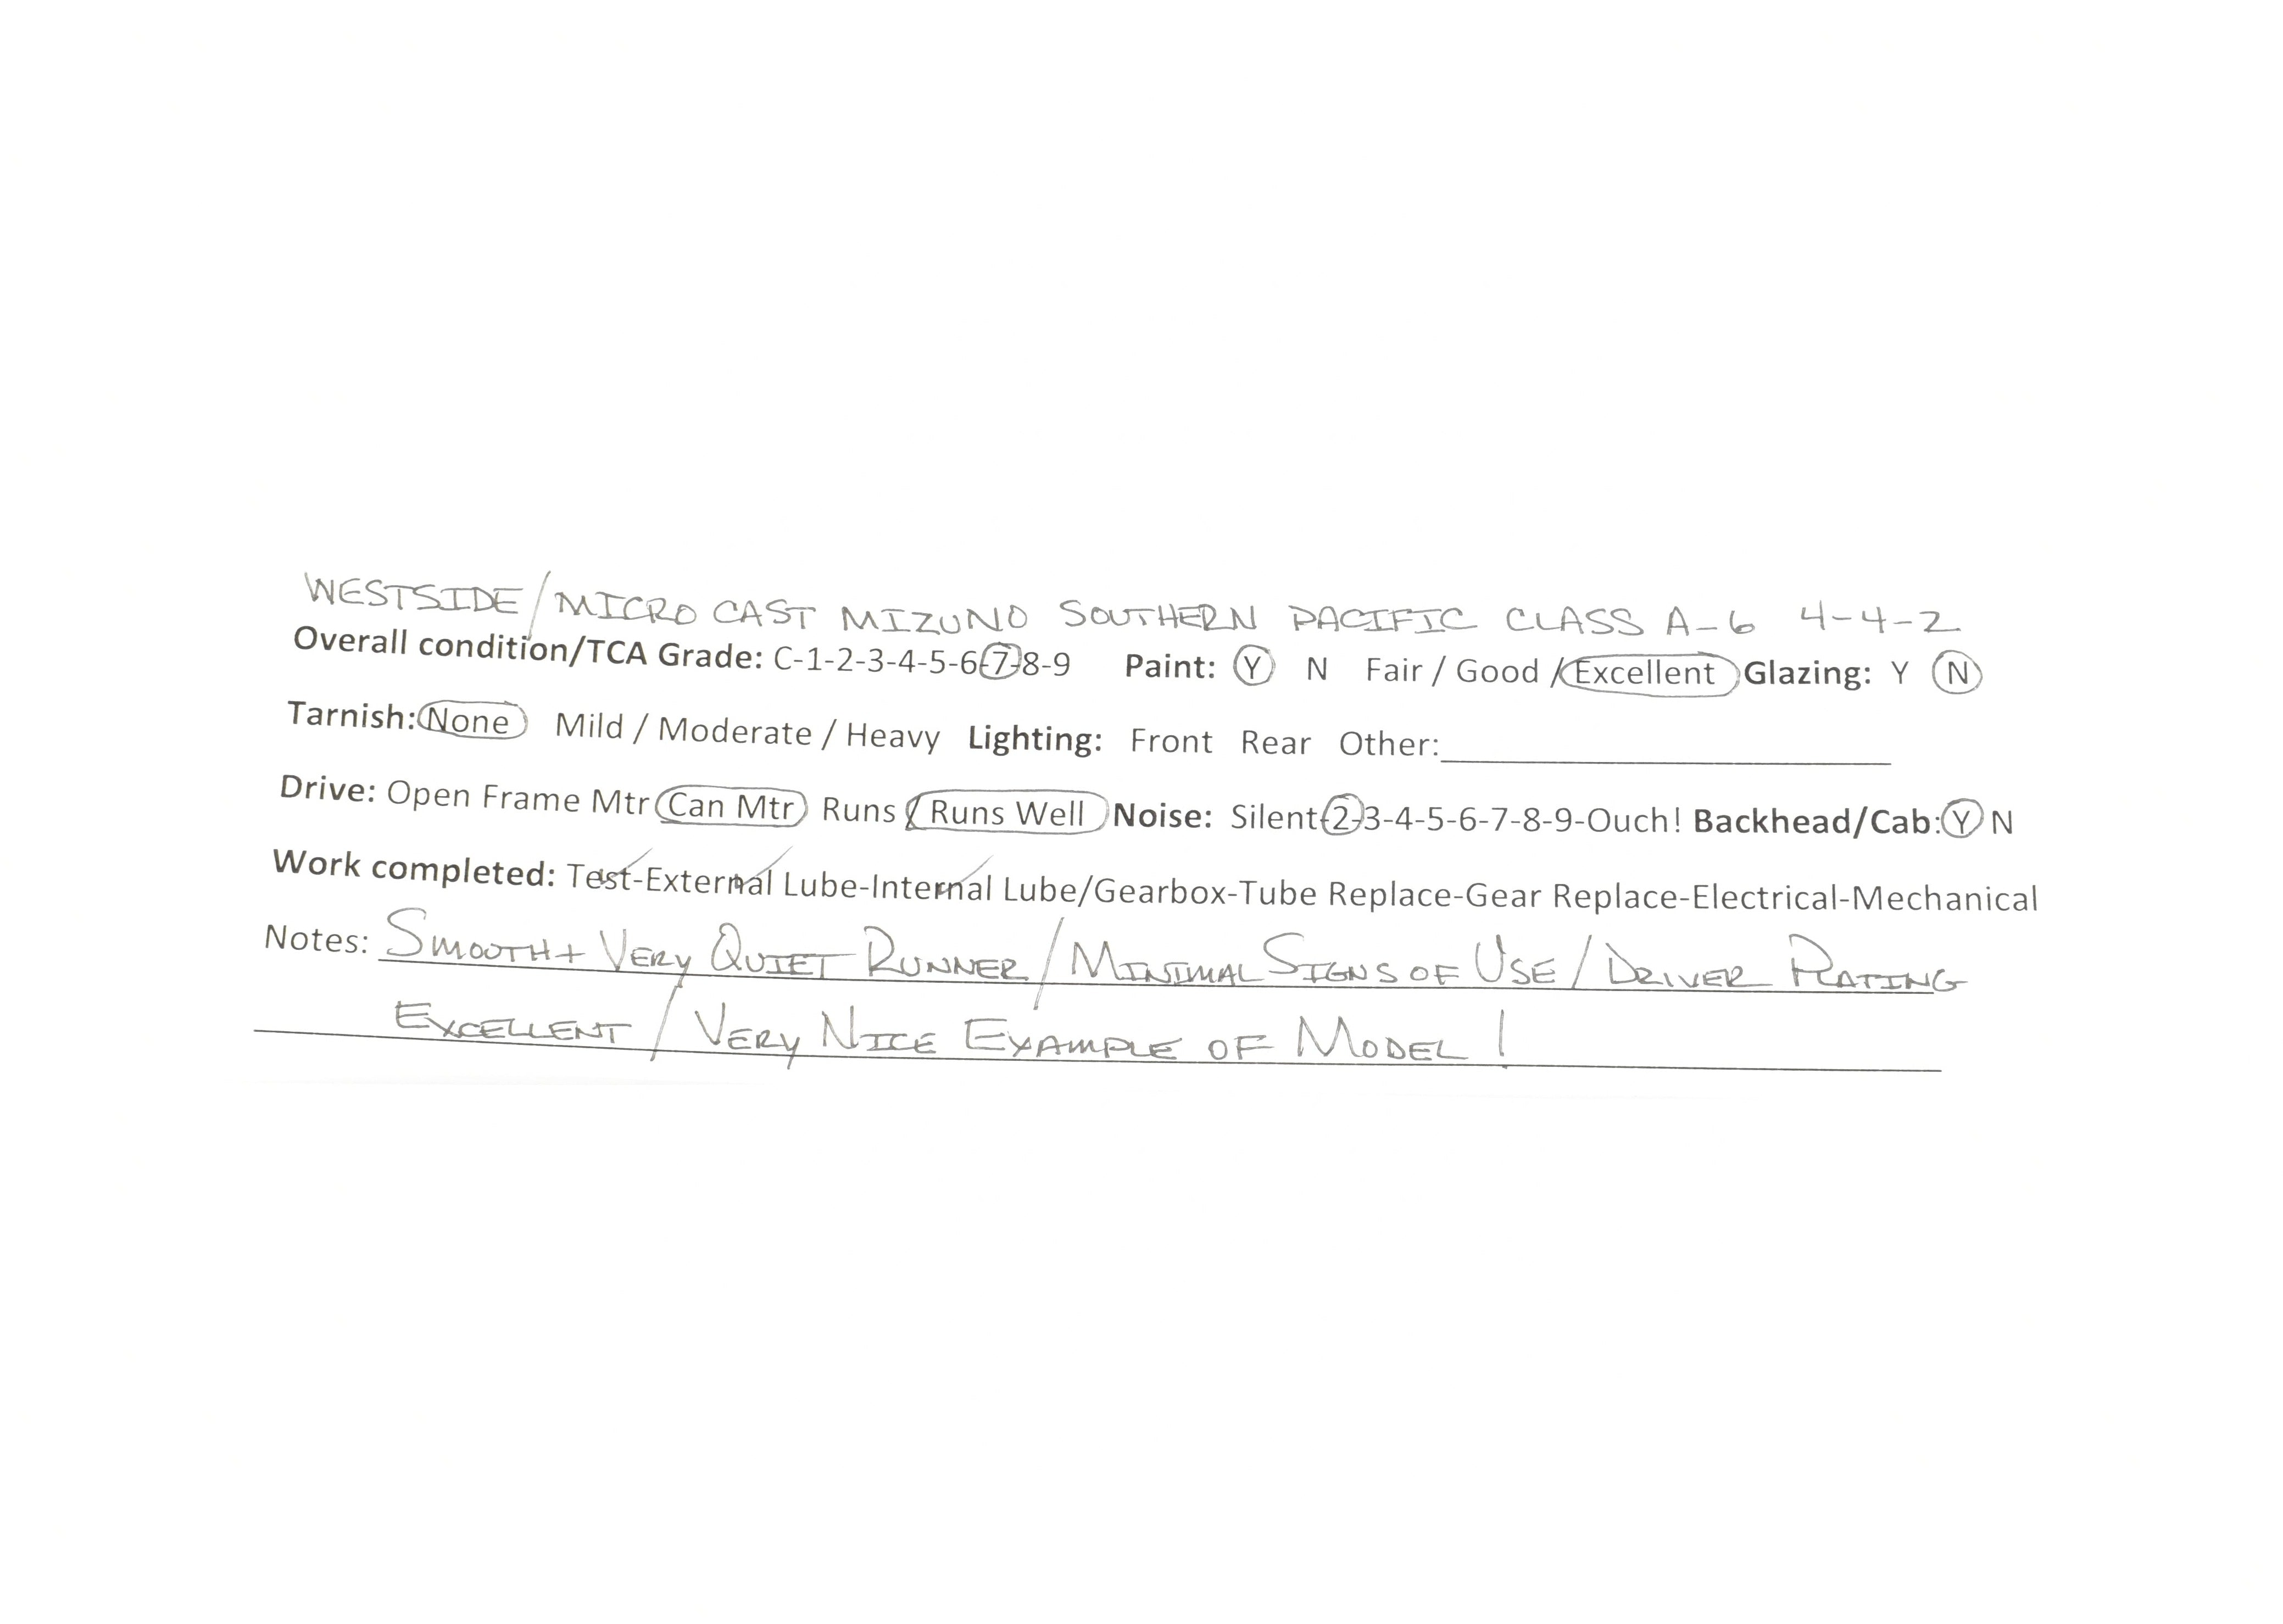 WESTSIDE/MICRO CAST MIZUNO SOUTHERN PACIFIC CLASS A-6 4-4-2
Overall condition/TCA Grade: C-1-2-3-4-5-6-7-8-9 Paint: Y N Fair / Good / Excellent Glazing: Y N
Tarnish: None Mild / Moderate / Heavy Lighting: Front Rear Other:
Drive: Open Frame Mtr Can Mtr Runs / Runs Well Noise: Silent-2-3-4-5-6-7-8-9-Ouch! Backhead/Cab: Y N
Work completed: Test-External Lube-Internal Lube/Gearbox-Tube Replace-Gear Replace-Electrical-Mechanical
Notes: SMOOTH + VERY QUIET RUNNER / MINIMAL SIGNS OF USE / DRIVER PLATING
EXCELLENT / VERY NICE EXAMPLE OF MODEL !